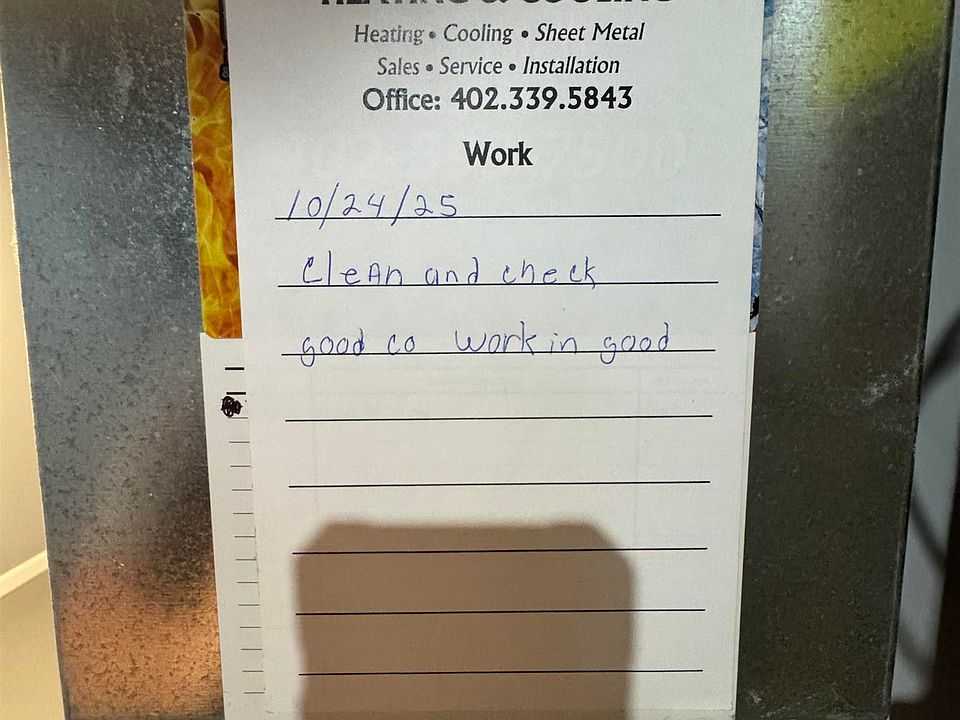 HEATING & COOLING
Heating • Cooling • Sheet Metal
Sales • Service • Installation
Office: 402.339.5843
Work
10/24/25
Clean and check
good co workin good